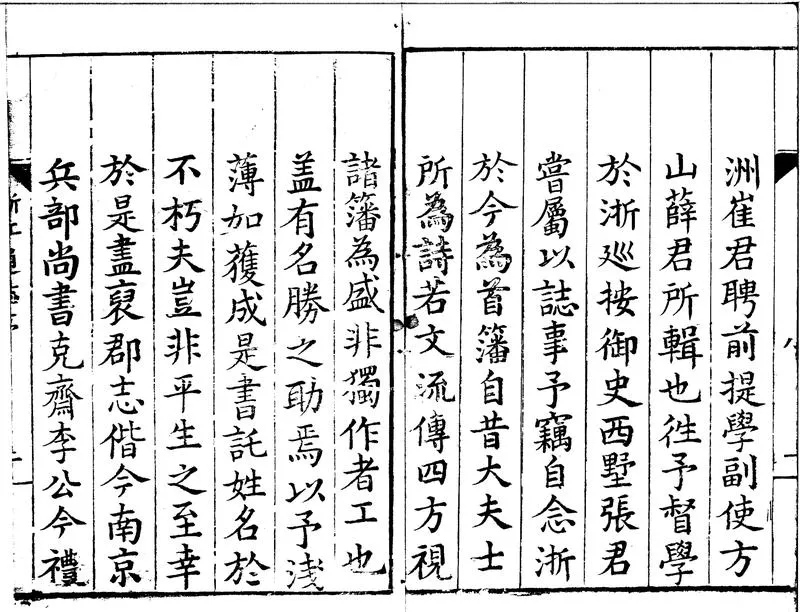 洲崔君聘前提學副使方
山薛君所輯也徃予督學
於浙廵按御史西墅張君
嘗屬以誌事予竊自念浙
於今為首籓自昔大夫士
所為詩若文流傳四方視
諸籓為盛非獨作者工也
盖有名勝之助焉以予淺
薄如獲成是書託姓名於
不朽夫豈非平生之至幸
於是盡裒郡志偕今南京
兵部尚書克齋李公今禮